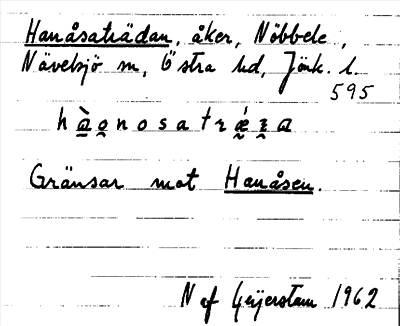 Hanåsaträdan, åker, Nöbbele,
Nävelsjö sn, Östra hd, Jönk. l.
595
Gränsar mot Hanåsen.
N af Geijerstam 1962